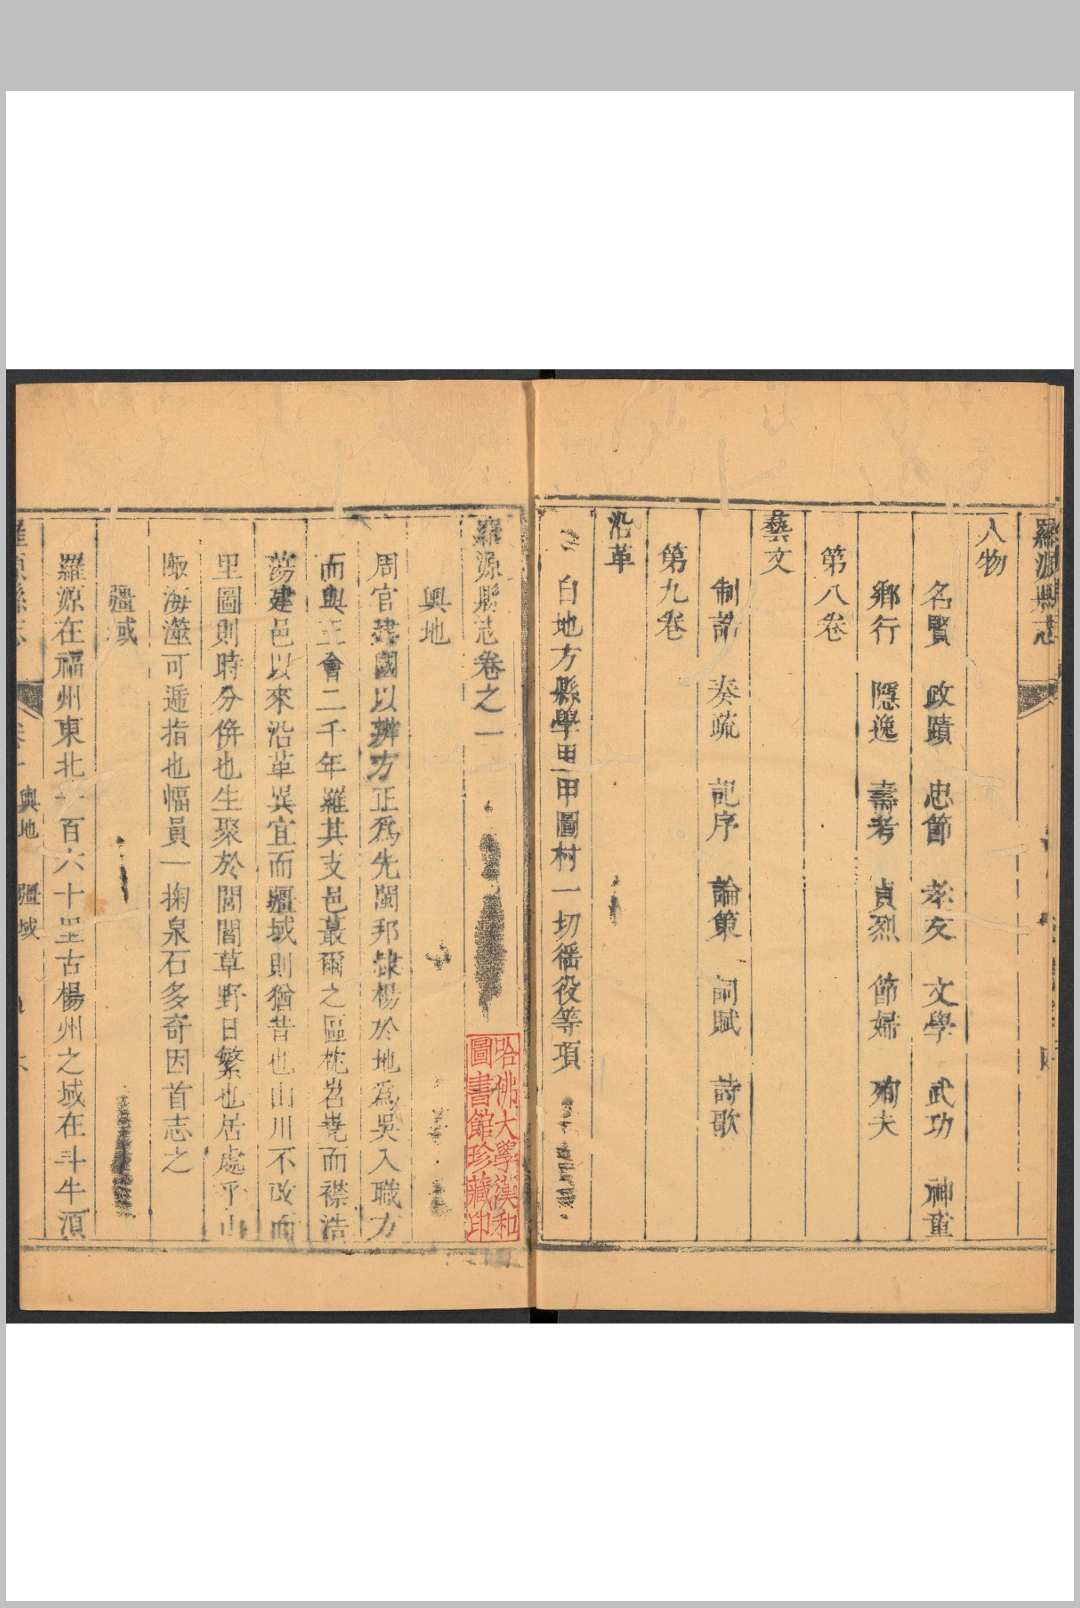 羅源縣志
人物
名賢 政蹟 忠節 孝友 文學 武功 神童
鄉行 隱逸 壽考 貞烈 節婦 殉夫
第八卷
藝文
制誥 奏疏 記序 論策 詞賦 詩歌
第九卷
沿革
自地方縣學里甲圖村一切徭役等項
羅源縣志卷之一
輿地
周官建國以辨方正為先閩邦隸楊於地為吳入職方
而輿王會二千年羅其支邑蕞爾之區枕岧嶤而襟浩
蕩建邑以來沿革異宜而疆域則猶昔也山川不改而
里圖則時分併也生聚於閭閻草野日繁也居處平山
陬海澨可遞指也幅員一掬泉石多奇因首志之
疆域
羅源在福州東北一百六十里古楊州之域在斗牛湏
羅源縣志
卷一 輿地 疆域
哈佛大學漢和
圖書館珍藏印